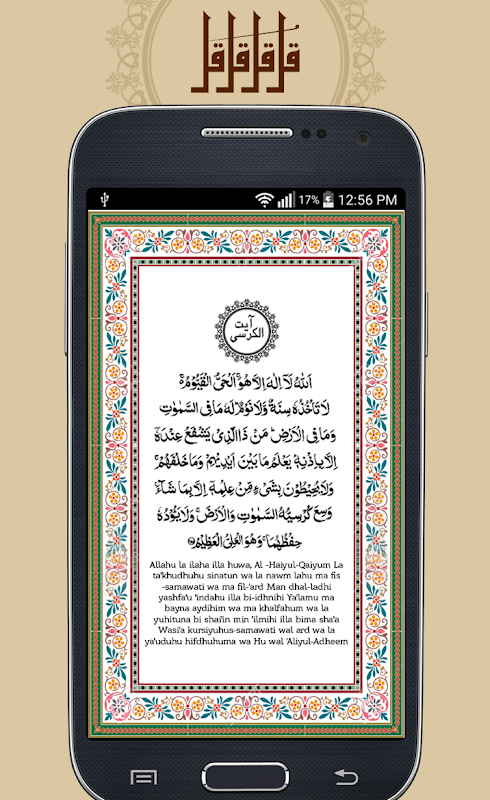 قُل قُل قُل قُل
17% 12:56 PM
آيت
الكرسي
اَللّٰهُ لَاۤ اِلٰهَ اِلَّا هُوَۚ اَلْحَیُّ الْقَیُّوْمُ ۚ
لَا تَاْخُذُهٗ سِنَةٌ وَّلَا نَوْمٌ ؕ لَهٗ مَا فِی السَّمٰوٰتِ
وَمَا فِی الْاَرْضِ ؕ مَنْ ذَا الَّذِیْ یَشْفَعُ عِنْدَهٗۤ
اِلَّا بِاِذْنِهٖ ؕ یَعْلَمُ مَا بَیْنَ اَیْدِیْهِمْ وَمَا خَلْفَهُمْ ۚ
وَلَا یُحِیْطُوْنَ بِشَیْءٍ مِّنْ عِلْمِهٖۤ اِلَّا بِمَا شَآءَ ۚ
وَسِعَ كُرْسِیُّهُ السَّمٰوٰتِ وَالْاَرْضَ ۚ وَلَا یَـُٔوْدُهٗ
حِفْظُهُمَا ۚ وَهُوَ الْعَلِیُّ الْعَظِیْمُ
Allahu la ilaha illa huwa, Al -Haiyul-Qaiyum La
ta'khudhuhu sinatun wa la nawm lahu ma fis
-samawati wa ma fil-'ard Man dhal-ladhi
yashfa'u 'indahu illa bi-idhnihi Ya'lamu ma
bayna aydihim wa ma khalfahum wa la
yuhituna bi shai'in min 'ilmihi illa bima sha'a
Wasi'a kursiyuhus-samawati wal ard wa la
ya'uduhu hifdhuhuma wa Hu wal 'Aliyul-Adheem